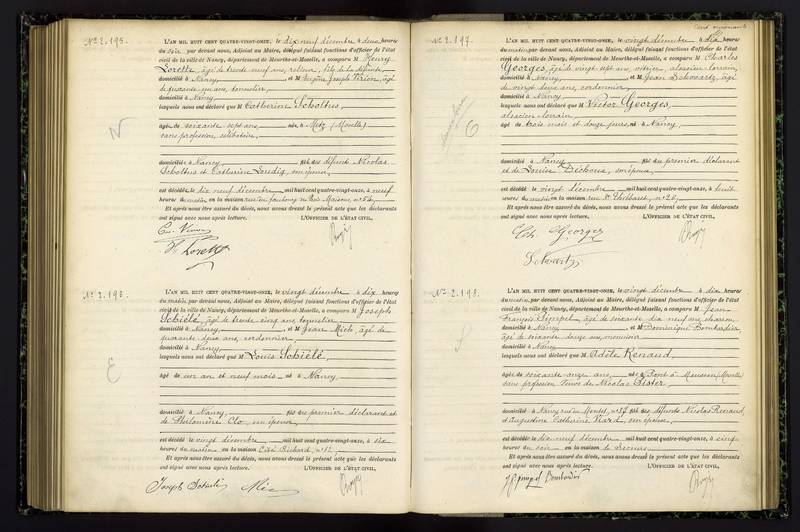 N° 2.195.
L'AN MIL HUIT CENT QUATRE-VINGT-ONZE, le dix neuf décembre à deux heures
du soir par devant nous, Adjoint au Maire, délégué faisant fonctions d'officier de l'état
civil de la ville de Nancy, département de Meurthe-et-Moselle, a comparu M Henry
Lorette, âgé de trente neuf ans, relieur, fils de la défunte
domicilié à Nancy et M Eugène Joseph Virion, âgé
de quarante un ans, tonnelier
domicilié à Nancy
lesquels nous ont déclaré que M Catherine Scholtus
âgée de soixante sept ans née à Metz (Moselle)
sans profession, célibataire
domicilié à Nancy fils des défunts Nicolas
Scholtus et Catherine, son épouse,
est décédé le dix neuf décembre mil huit cent quatre-vingt-onze, à neuf
heures du matin en la maison rue du faubourg des Trois Maisons, n°
Et après nous être assuré du décès, nous avons dressé le présent acte que les déclarants
ont signé avec nous après lecture. L'OFFICIER DE L'ÉTAT CIVIL,
N
N° 2.196.
L'AN MIL HUIT CENT QUATRE-VINGT-ONZE, le vingt décembre à dix heures
du matin, par devant nous, Adjoint au Maire, délégué faisant fonctions d'officier de l'état
civil de la ville de Nancy, département de Meurthe-et-Moselle, a comparu M Joseph
Schiélé, âgé de trente cinq ans, journalier
domicilié à Nancy et M Jean Mick, âgé de
quarante deux ans, cordonnier
domicilié à Nancy
lesquels nous ont déclaré que M Louis Schiélé,
âgé de un an et neuf mois né à Nancy
domicilié à Nancy fils du premier déclarant et
de Philomène Clo, son épouse
est décédé le vingt décembre mil huit cent quatre-vingt-onze, à six
heures du matin en la maison Cité Richard, n° 12
Et après nous être assuré du décès, nous avons dressé le présent acte que les déclarants
ont signé avec nous après lecture. L'OFFICIER DE L'ÉTAT CIVIL,
E
N° 2.197.
L'AN MIL HUIT CENT QUATRE-VINGT-ONZE, le vingt décembre à dix heures
du matin par devant nous, Adjoint au Maire, délégué faisant fonctions d'officier de l'état
civil de la ville de Nancy, département de Meurthe-et-Moselle, a comparu M Charles
Georges, âgé de vingt sept ans, alsacien lorrain,
domicilié à Nancy et M Jean Schwartz, âgé
de vingt deux ans, cordonnier
domicilié à Nancy
lesquels nous ont déclaré que M Victor Georges,
alsacien lorrain
âgé de trois mois et douze jours, né à Nancy,
domicilié à Nancy fils du premier déclarant
et de Louise, son épouse
est décédé le vingt décembre mil huit cent quatre-vingt-onze, à huit
heures du matin en la maison rue St Thiébaut, n° 26
Et après nous être assuré du décès, nous avons dressé le présent acte que les déclarants
ont signé avec nous après lecture. L'OFFICIER DE L'ÉTAT CIVIL,
Ch Georges
Schwartz
N° 2.198.
L'AN MIL HUIT CENT QUATRE-VINGT-ONZE, le vingt décembre à dix heures
du matin, par devant nous, Adjoint au Maire, délégué faisant fonctions d'officier de l'état
civil de la ville de Nancy, département de Meurthe-et-Moselle, a comparu M Jean
François, âgé de soixante dix neuf ans
domicilié à Nancy et M Dominique Bombardier
âgé de soixante douze ans, menuisier
domicilié à Nancy
lesquels nous ont déclaré que M Adèle Renaud,
âgée de soixante onze ans, née à Pont à Mousson (Meurthe)
sans profession Veuve de Nicolas Sister
domicilié à Nancy rue n° 37 fils des défunts Nicolas Renaud,
et Augustine Catherine, son épouse,
est décédé le dix neuf décembre mil huit cent quatre-vingt-onze, à cinq
heures du soir en la maison de Secours
Et après nous être assuré du décès, nous avons dressé le présent acte que les déclarants
ont signé avec nous après lecture. L'OFFICIER DE L'ÉTAT CIVIL,